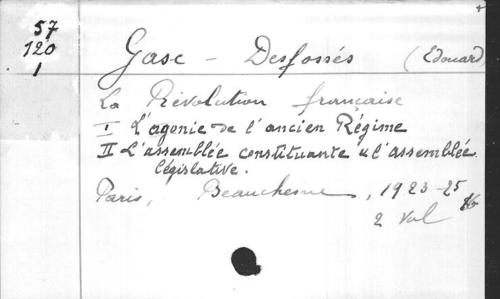 57
120
1
Gasc - Desfossés (Edouard)
La Révolution française
I L'agonie de l'ancien Régime
II L'assemblée constituante & l'assemblée
législative.
Paris, Beauchesne, 1923-25
2 vol